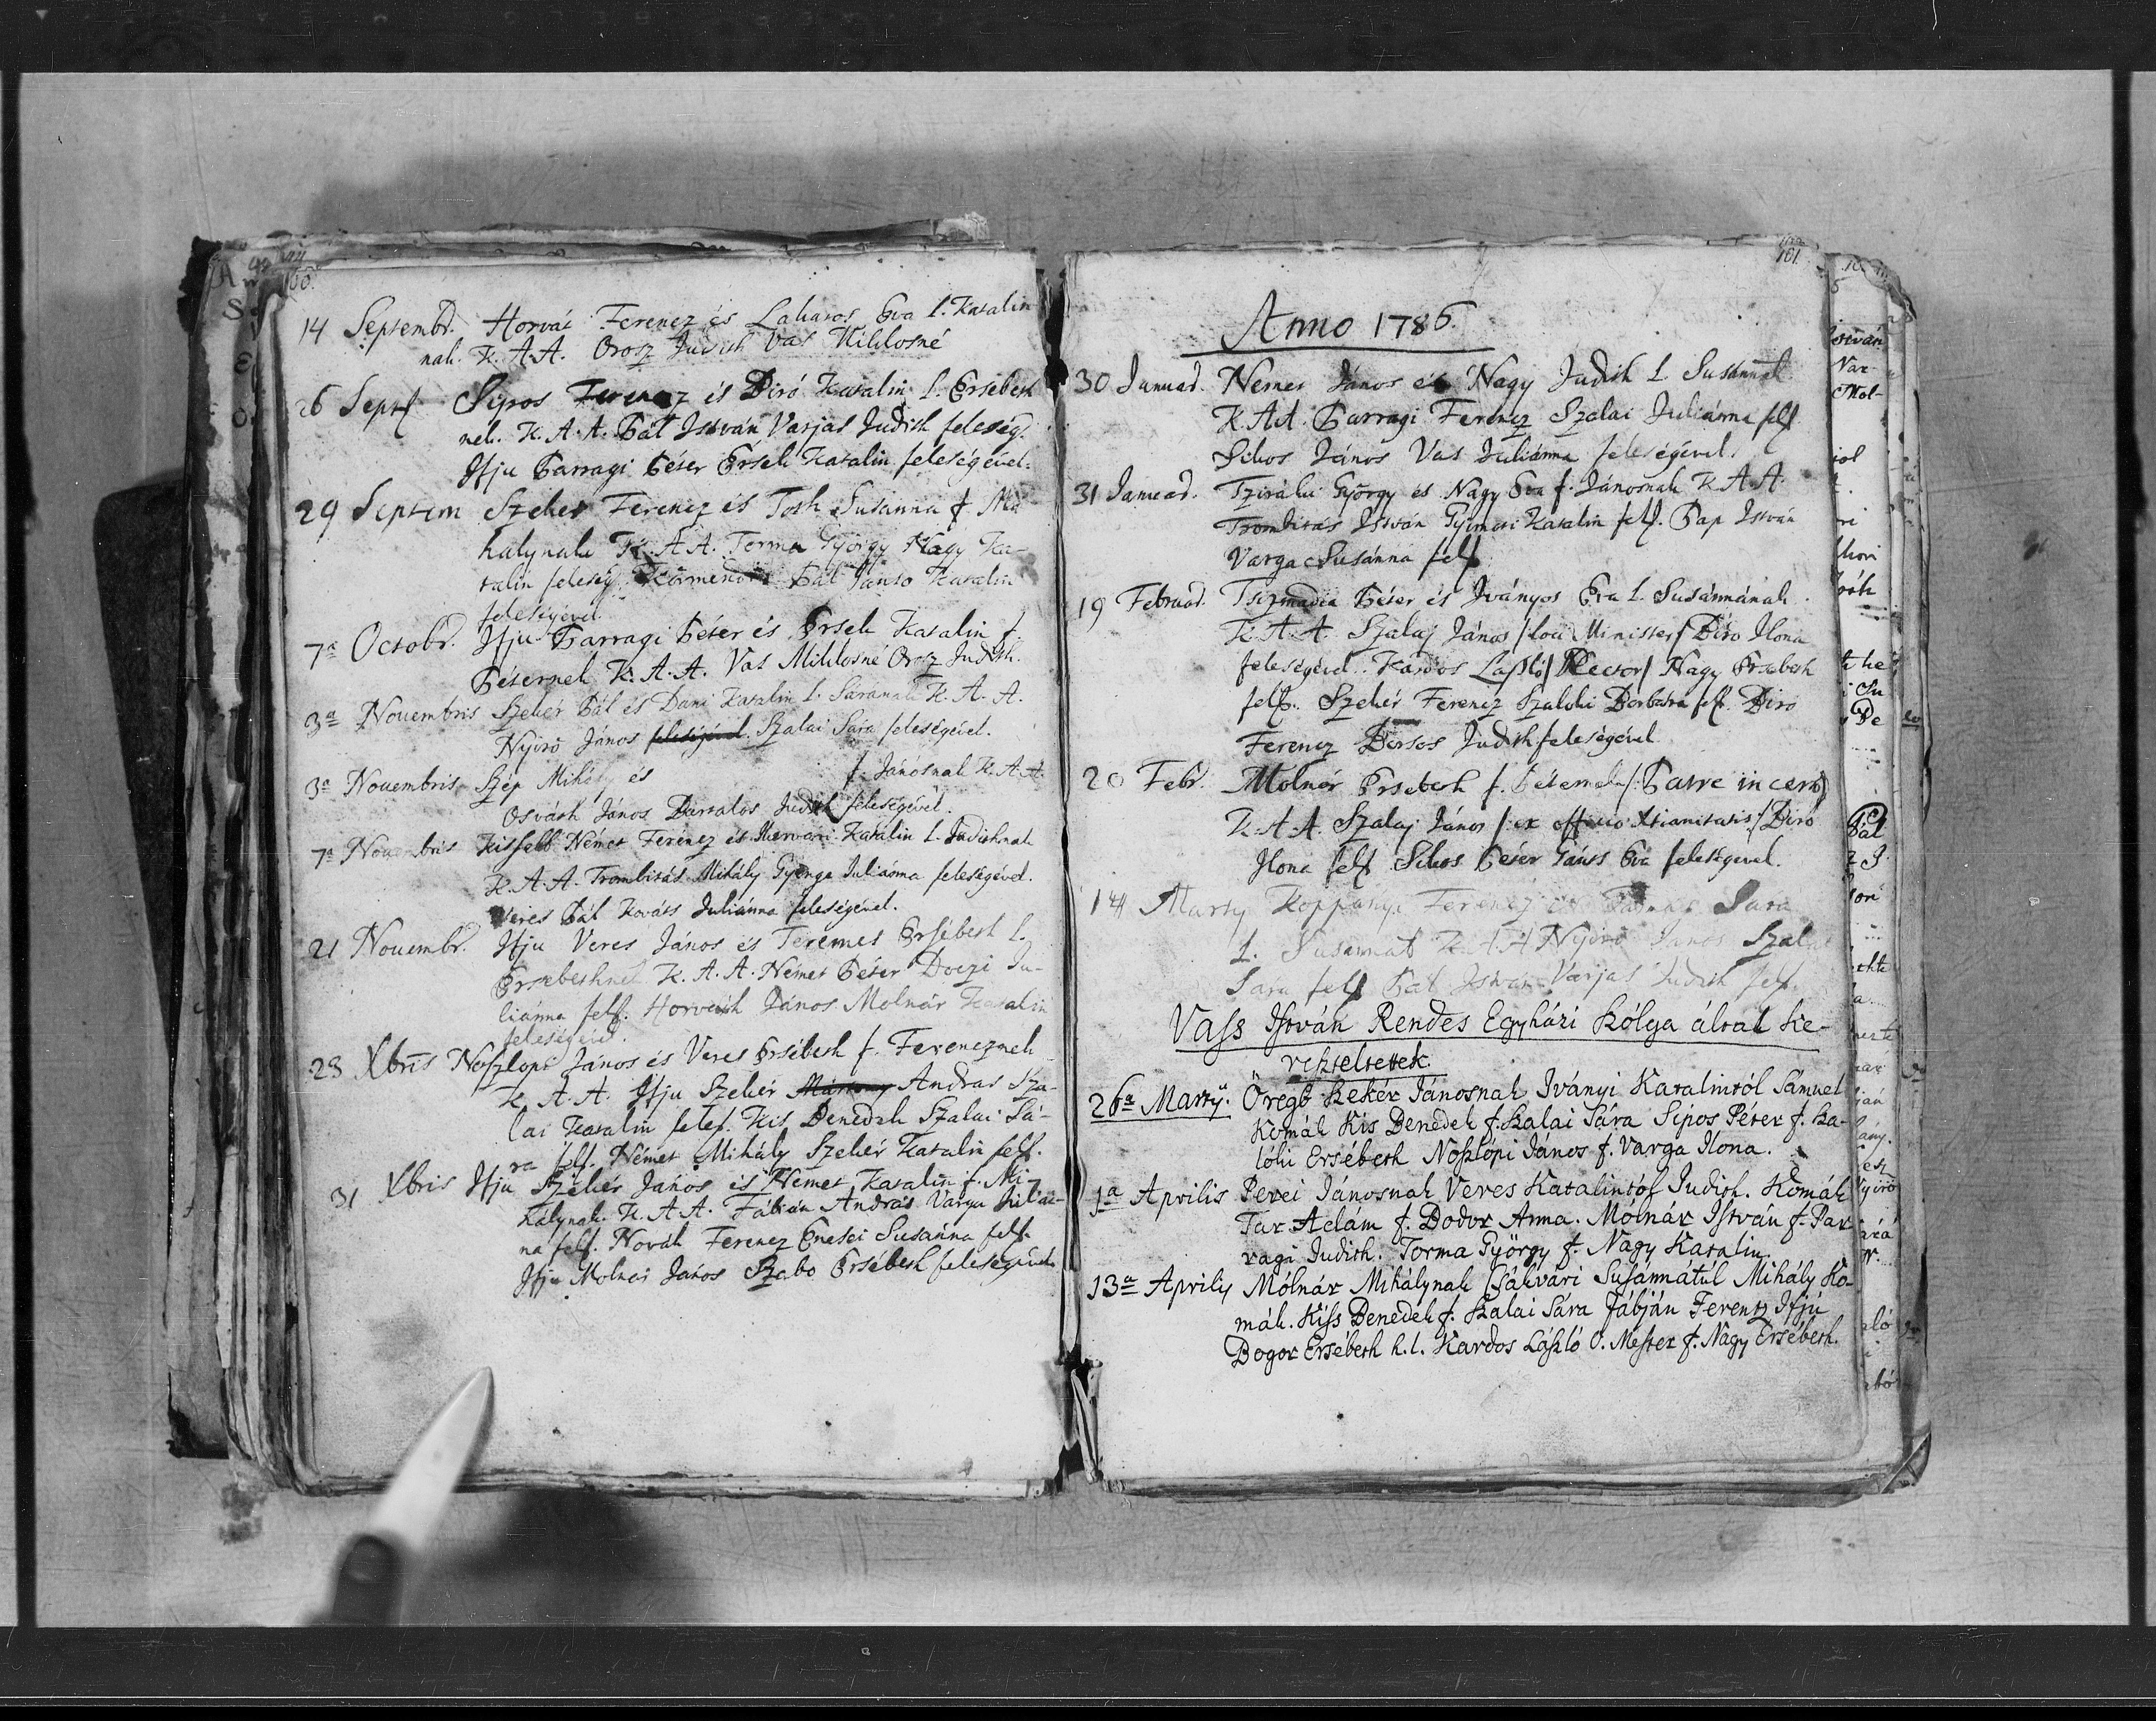 100.
14 Septembr. Horvát Ferencz és Lakatos Éva l. Katalin
nak. K. A. A. Orosz Judith Vas Miklosné
26 Sept Sipos Ferencz és Biró Katalin l. Ersebeth
nek. K. A. A. Pál István Varjas Judith feleség.
Ifju Parragi Péter Ersek Katalin feleségével.
29 Septem Szekér Ferencz és Toth Susanna f. Mi
halynak K. A. A. Torma György Nagy Ka-
talin feleség. Körmendi Pál Katalin
feleségével.
7a Octobr. Ifju Parragi Péter és Ersek Katalin f.
Péternek K. A. A. Vas Miklosné Orosz Judith.
3a Novembris Szekér Pál és Dani Katalin l. Sáranak K. A. A.
Nyirö János feleségével Szalai Sára feleségével.
3a Novembris Szép Mihály és f. Jánosnak K. A. A.
Osváth János Bartalos Judith feleségével.
7a Novembris Kissebb Német Ferencz és Katalin l. Judithnak
K. A. A. Trombitás Mihály Gyenge Juliánna feleségével.
Veres Pál Kováts Juliánna feleségével.
21 Novembr. Ifju Veres János és Teremes Ersébeth l.
Ersebethnek K. A. A. Német Péter Doczi Ju-
liánna felf. Horváth János Molnár Katalin
feleségével.
28 Xbris Noszlopi János és Veres Ersébeth f. Ferencznek
K. A. A. Ifju Szekér András Sza-
lai Katalin felef. Kis Benedek Szalai Sá-
ra felf. Német Mihály Szekér Katalin felf.
31 Xbris Ifju Szekér János és Német Katalin f. Mi-
hálynak. K. A. A. Fábián András Varga Julián-
na felf. Novák Ferencz Enesei Susánna felf.
Ifju Molnár János Szabo Ersébeth feleségével
101.
Anno 1786.
30 Januar. Nemes János és Nagy Judith l. Susánnak
K. A. A. Parragi Ferencz Szalai Juliánna felf
Sikos János Vas Juliánna feleségével.
31 Januar. Tziráki György és Nagy Éva f. Jánosnak K. A. A.
Trombitás István Gyimoti Katalin felf. Pap István
Varga Susánna felf
19 Februar. Tsizmadia Péter és Iványos Éva l. Susánnának
K. A. A. Szalaj János /loci Minister/ Biro Ilona
feleségével. Kardos László /Rector/ Nagy Ersebeth
felf. Szekér Ferencz Szaloki Borbára felf. Biro
Ferencz Borsos Judith feleségével
20 Febr. Molnár Ersebeth f. Péternek /: Patre incerto
K. A. A. Szalaj János /: ex officio Xtianitatis :/ Biro
Ilona felf Sikos Péter Éva feleségével.
14 Marty Koppányi Ferencz és Sára
l. Susannat K. A. A. Nyirö János Szalai
Sára felf Pál István Varjas Judith felf.
Vass István Rendes Egyházi Szólga által ke-
reszteltettek
26a Martÿ. Öregb Szekér Jánosnak Iványi Katalintól Sámuel
Komák Kis Benedek f. Szalai Sára Sipos Péter f. Sza-
lóki Ersébeth Noszlópi János f. Varga Ilona.
1a Aprilis Perei Jánosnak Veres Katalintól Judith. Komák
Tar Adám f. Bodor Anna. Mólnár István f. Par-
ragi Judith. Torma György f. Nagy Katalin.
13a Aprilis Mólnár Mihálynak Csákvári Susánnától Mihály Ko-
mák. Kiss Benedek f. Szalai Sára Fábján Ferentz Ifjú
Bogor Ersébeth h. l. Kardos László O. Mester f. Nagy Ersébeth.